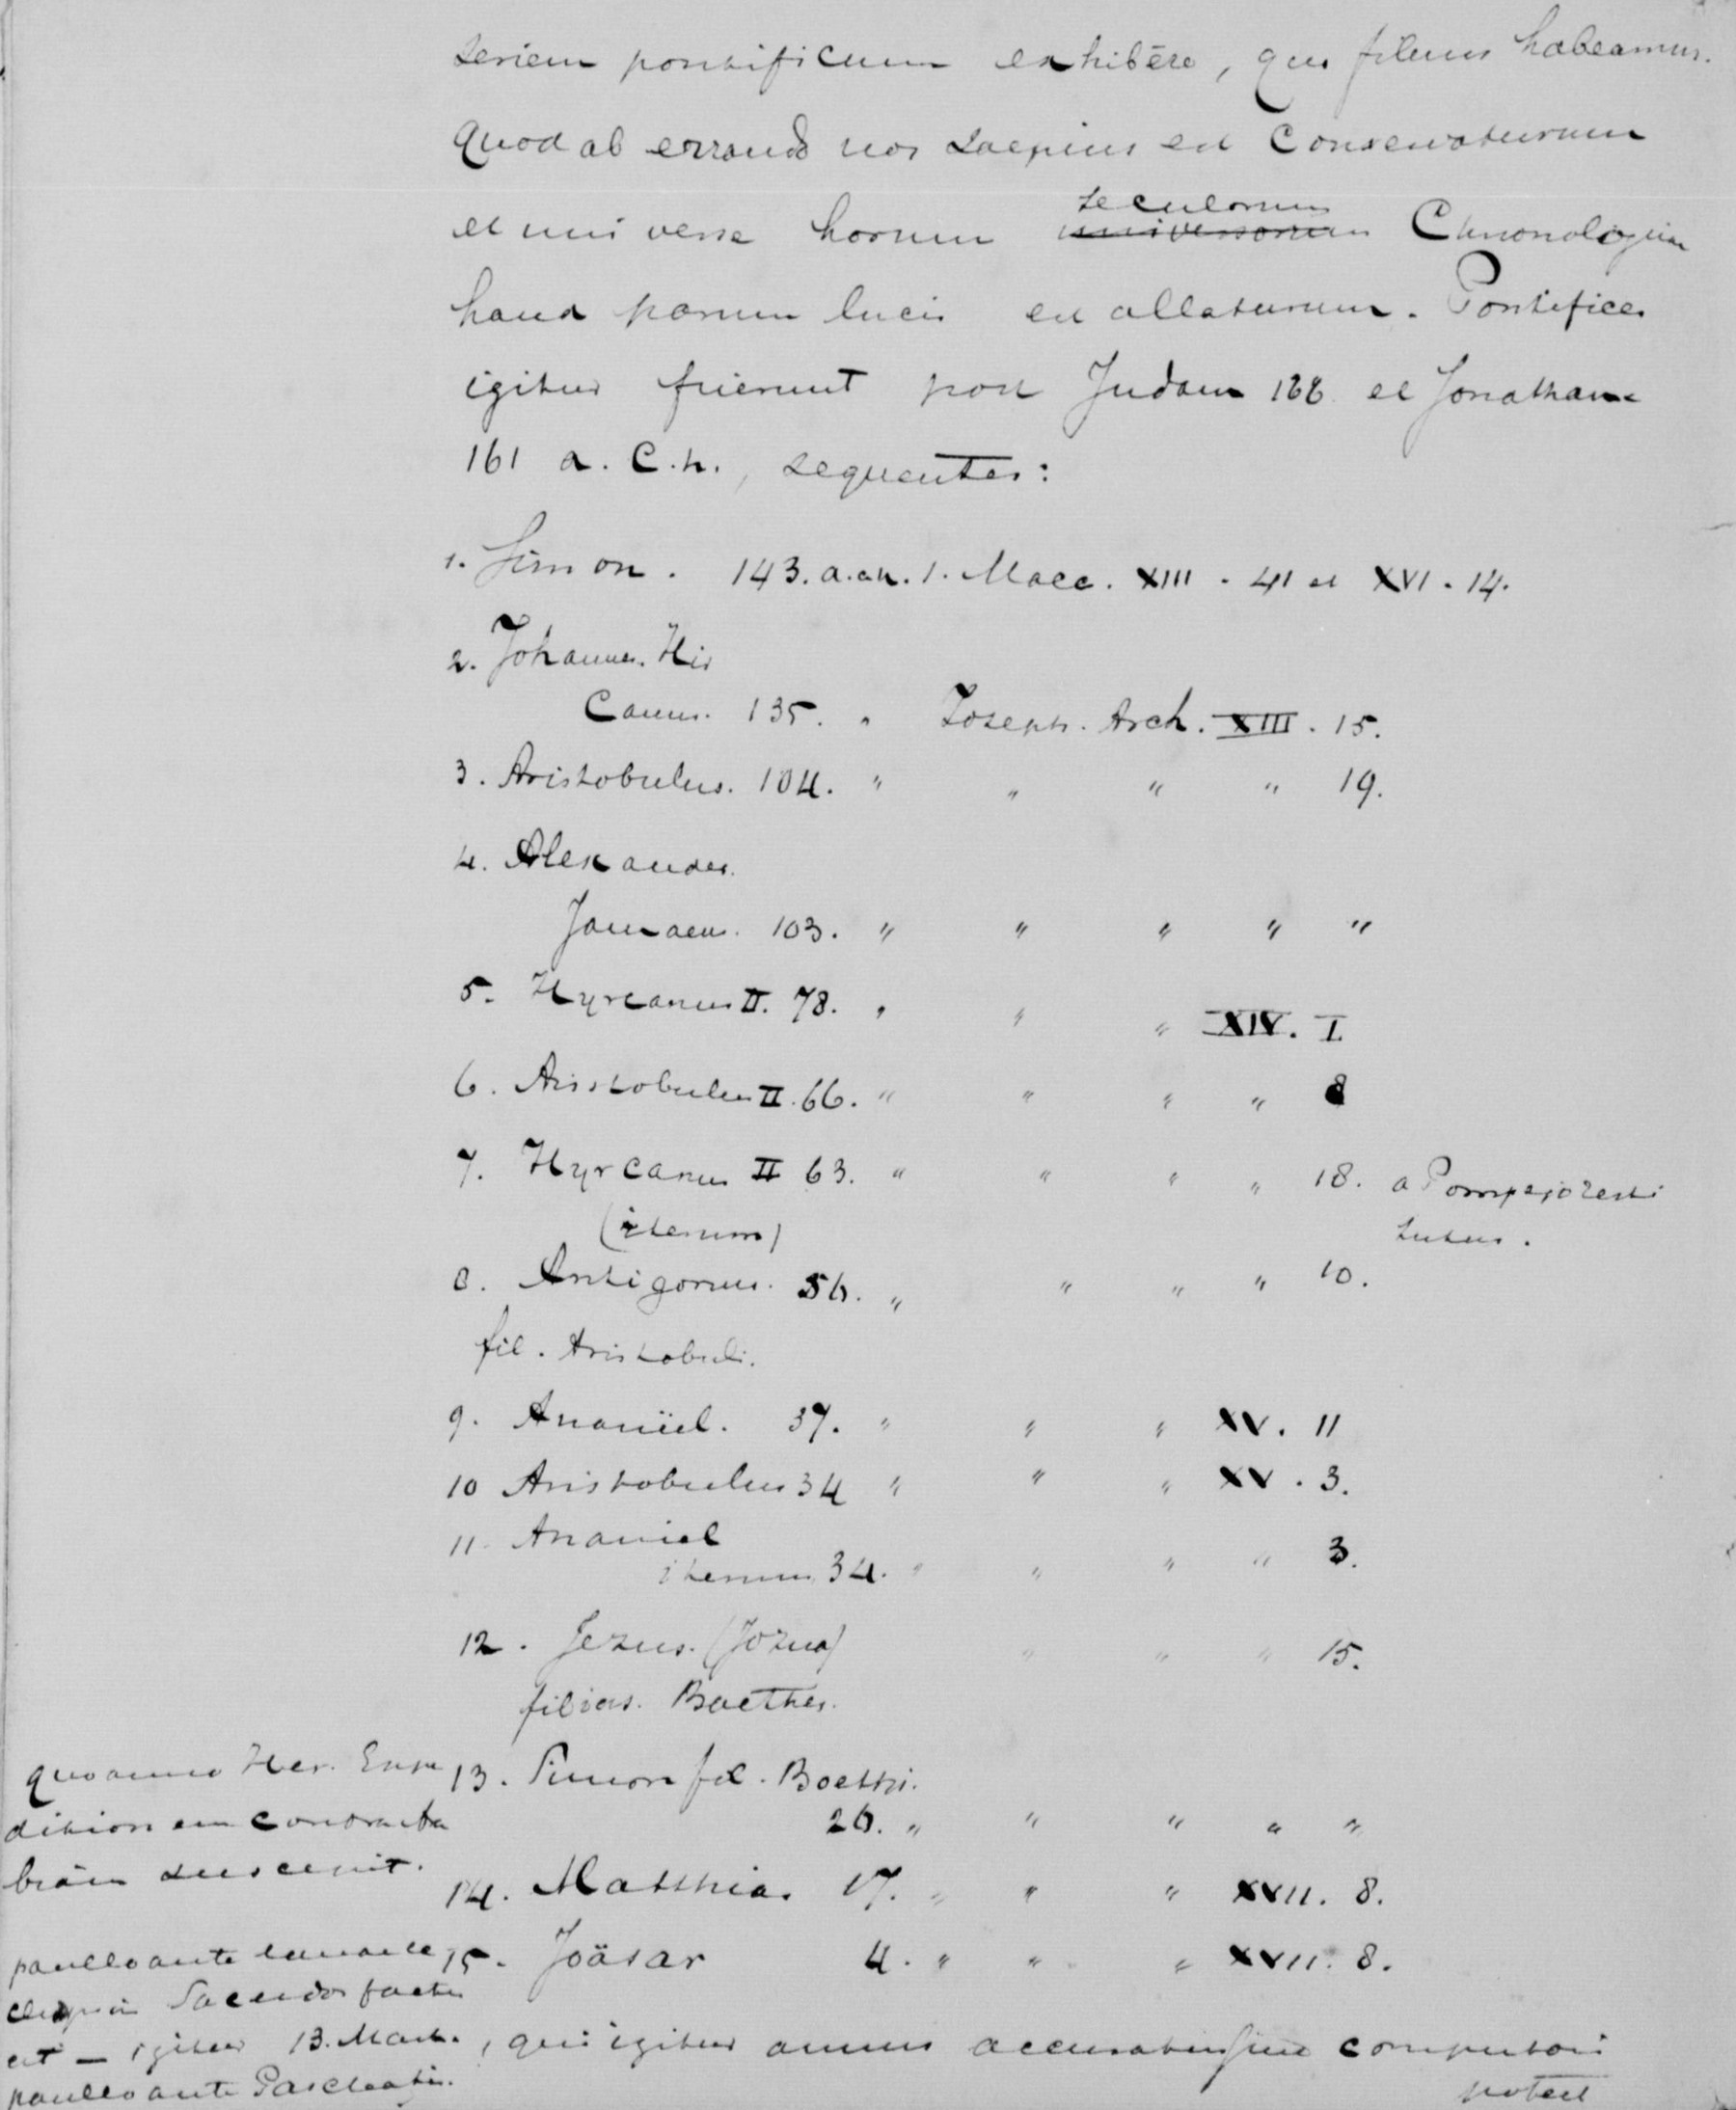 seriem pontificum exhibēre, quo filum habeamus.
Quod ab errando nos saepius est conservaturum
et universe horum seculorum Chronologiae
haud parum lucis est allaturum. Pontifices
igitur fuerunt post Judam 166 et Jonathane
161 a. C. n., sequentes:
1. Simon. 143. a. ch. 1. Macc. XIII. 41 et XVI. 14.
2. Johannes. Hir
Canus. 135. " Joseph. Arch. XIII. 15.
3. Aristobulus. 104. " " " " 19.
4. Alexander.
Jannaeus. 103. " " " " "
5. Hyrcanus II. 78. " " " XIV. I
6. Aristobulus II. 66. " " " " 8
7. Hyrcanus II 63. " " " " 18. a Pompejo resti
(iterum) tutus.
8. Antigonus. 56. " " " " 10.
fil. Aristobuli.
9. Ananiël. 37. " " " XV. 11
10 Aristobulus 34 " " " XV. 3.
11. Ananiel
iterum 34. " " " " 3.
12. Jezus. (Jozua) " " " 15.
filius. Boethes.
quo anno Her. Expe
ditionem contra Ara
biam suscepit.
13. Simon fil. Boethi.
26. " " " " "
14. Matthias 17. " " " XVII. 8.
15. Joäsar 4. " " " XVII. 8.
paullo ante lunae
Sacerdos factus
est — igitur 13. Mart.
paullo ante Paschatis.
, qui igitur annus accuratissime computari
potest